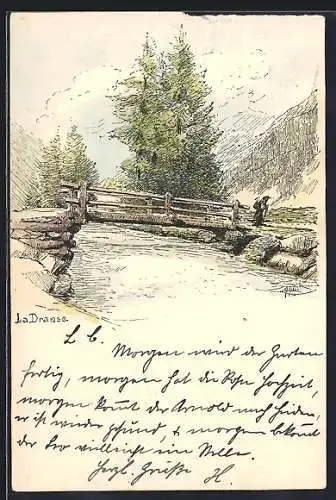 La Dranse
L. b.
Morgen wird der Garten
fertig, morgen hat die Rosa Hochzeit,
morgen kommt der Arnold nach Heiden,
er ist wieder gesund, & morgen bekommt
der vielleicht ein Velo.
Herzl. Grüße H.